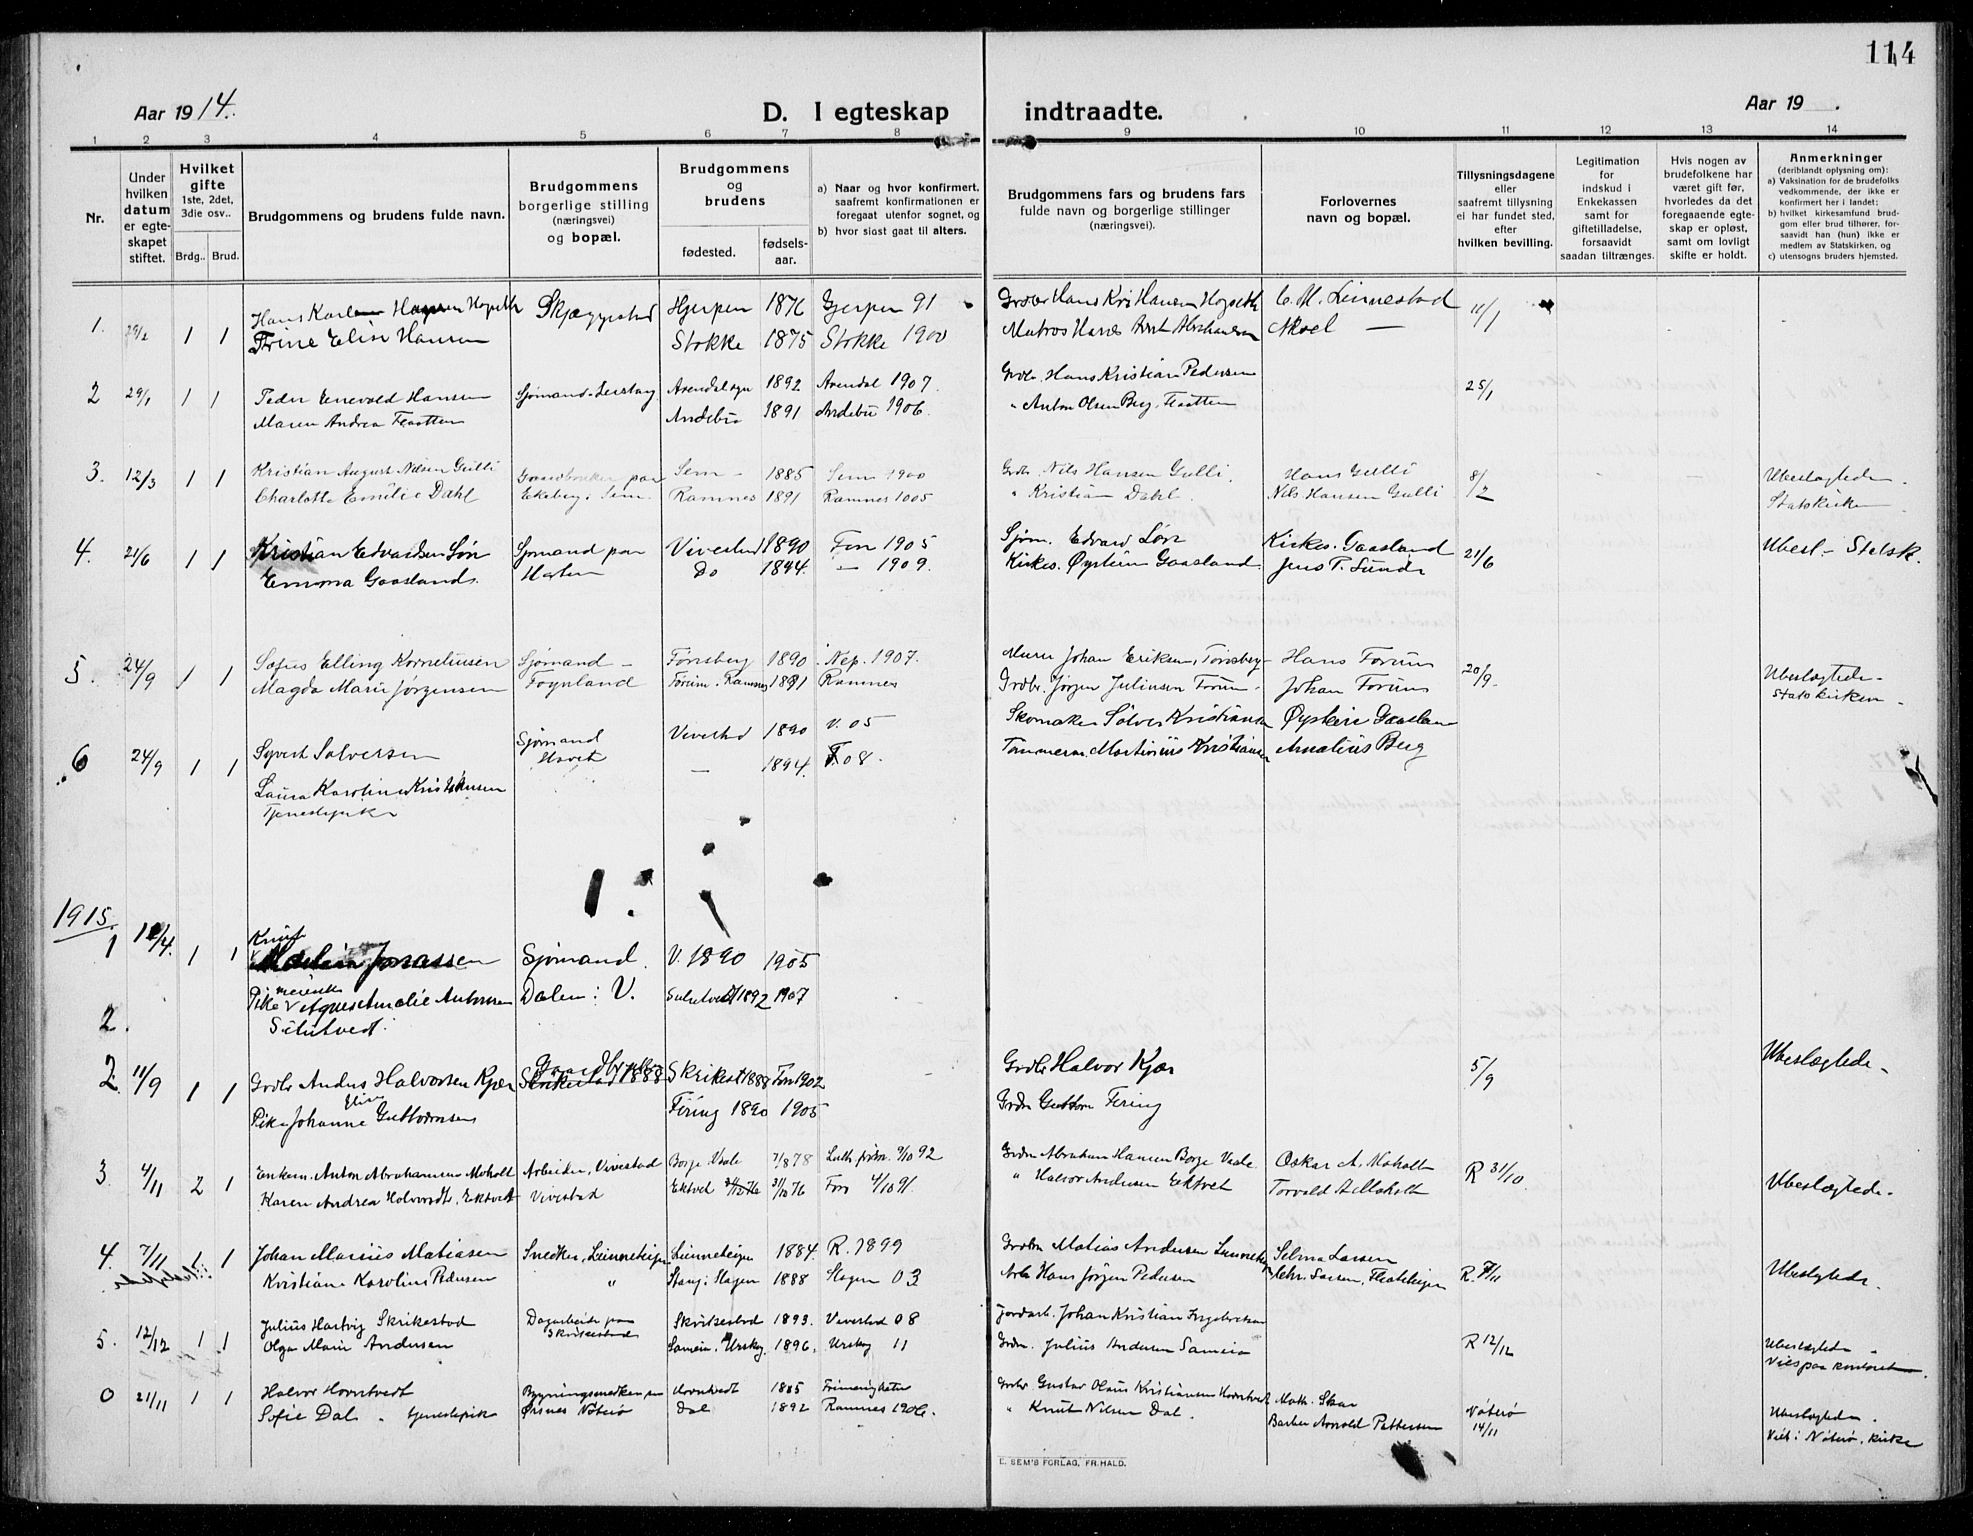 114
Aar 1914.
D. I egteskap indtraadte.
Aar 19 .
1 2 3 4 5 6 7 8 9 10 11 12 13 14
Nr.
Under hvilken datum er egteskapet stiftet.
Hvilket gifte 1ste, 2det, 3die osv..
Brdg.. Brud.
Brudgommens og brudens fulde navn.
Brudgommens borgerlige stilling (næringsvei) og bopæl.
Brudgommens og brudens
fødested. fødselsaar.
a) Naar og hvor konfirmert, saafremt konfirmationen er foregaat utenfor sognet, og
b) hvor sidst gaat til alters.
Brudgommens fars og brudens fars fulde navn og borgerlige stillinger (næringsvei).
Forlovernes navn og bopæl.
Tillysningsdagene eller saafremt tillysning ei har fundet sted, efter hvilken bevilling.
Legitimation for indskud i Enkekassen samt for giftetilladelse, forsaavidt saadan tiltrænges.
Hvis nogen av brudefolkene har været gift før, hvorledes da det foregaaende egteskap er opløst, samt om lovligt skifte er holdt.
Anmerkninger (deriblandt oplysning om):
a) Vaksination for de brudefolks vedkommende, der ikke er konfirmert her i landet;
b) hvilket kirkesamfund brudgom eller brud tilhører, forsaavidt han (hun) ikke er medlem av Statskirken, og
c) utensogns bruders hjemsted.
1. 1 1 Hans Hansen Skjæggestad Gjerpen 1876 Gjerpen 91 Grdbr Hans Kr. Hansen C. M. Linnestad 11/1
Trine Elise Hansen Stokke 1875 Stokke 1900 Matros Abrahamsen Aksel —
2 29/1 1 1 Peder Enevold Hansen Sjømand 1892 Arendal 1907. Grdbr. Hans Kristian Pedersen 25/1
Maren Andrea Flaatten Andebu 1891 Andebu 1906. " Anton Olsen Berg, Flaatten
3. 12/3 1 1 Kristian August Nilsen Gulli Gaardbruker paa Sem - 1885 Sem 1900 Grdbr. Nils Hansen Gulli. Hans Gulli 8/2 Ubeslægtede.
Charlotte Emilie Dahl Ekeberg i Sem. Ramnes 1891 Ramnes 1005 " Kristian Dahl. Nils Hansen Gulli Statskirken
4. 21/6 1 1 Kristian Edvardsen Sjømand paa Vivestad 1890 Fon 1905 Sjøm. Edvard Kirkes. Gaasland 21/6 Ubesl - Statsk.
Emma Gaasland. Do 1894. — 1909. Kirkes. Øystein Gaasland. Jens P. Sunde
5. 24/9 1 1 Sofus Elling Kornelinsen Sjømand - Tønsberg 1890 Nøt. 1907. Murer Johan Eriksen, Tønsberg Hans Forum 20/9. Ubeslægtede -
Magda Marie Jørgensen Føynland Forum. Ramnes 1891 Ramnes Grdbr. Jørgen Juliussen Forum - Johan Forum Statskirken -
6 24/9 1 1 Syvert Solversen Sjømand Vivestad 1890 V. 05 Skomaker Sølver Kristiansen Øystein Gaasland
Laura Karoline Kristiansen — 1894. F. 08. Tømmerm. Martinius Kristiansen Amalius Berg
Tjenestepike
1915.
1 1 1 Knut
Jonassen Sjømand. V. 1890 1905
Pike Agnes Amalie Antonsen Dalen i V. 1892 1907
2.
2 11/9 1 1 Grdbr Anders Halvorsen Kjær Gaardbruker Skrikestad 1888 Fon 1902 Grdbr Halvor Kjær 5/9 Ubeslægtede -
Elise
Pike Johanne Guttormsen Firing 1890 1905 Grdbr Guttorm Firing
3 4/11 2 1 Enkem. Anton Abrahamsen Moholt Arbeider, Vivestad Borge Vaale 7/8 78 92 Grdbr Abraham Hansen Borge Vaale Oskar A. Moholt R 31/10 Ubeslægtede.
Karen Andrea Halvorsdt. Ektvedt Vivestad Ektvedt 76 Fon 4/10 91. " Halvor Andersen Ektvet Torvald A Moholt
4. 7/11 1 1 Johan Marius Matiasen Snedker, 1884. R. 1899 Grdbr Matias Andersen Selma Larsen R. 7/11 Ubeslægtede.
Kristiane Karoline Pedersen " Slagen 1888 Slagen 03 Arb Hans Jørgen Pedersen Chr. Larsen,
5. 12/12 1 1 Julius Hartvig Skrikestad Dagarbeider paa Skrikestad 1893. Vivestad 08 Jordarb. Johan Kristian R 12/12 Ubeslægtede.
Olga Marie Andersen Skrikestad Urskog. 1896. Urskog 11 Grdbr. Julius Andersen Viet paa kontoret
0 21/11 1 1 Halvor Horntvedt Bygningssnedker paa Horntvedt 1885 Frimenigheten Grdbr Gustav Olaus Kristiansen Horntvedt Math. Skar Nøterø Ubeslægtede.
Sofie Dal. tjenestepike Ørsnes Nøterø Dal 1892 Ramnes 1906. " Knut Nilsen Dal. Barber Arnold Pettersen 14/11 Viet i Nøterø kirke
E. SEM'S FORLAG, FR.HALD.